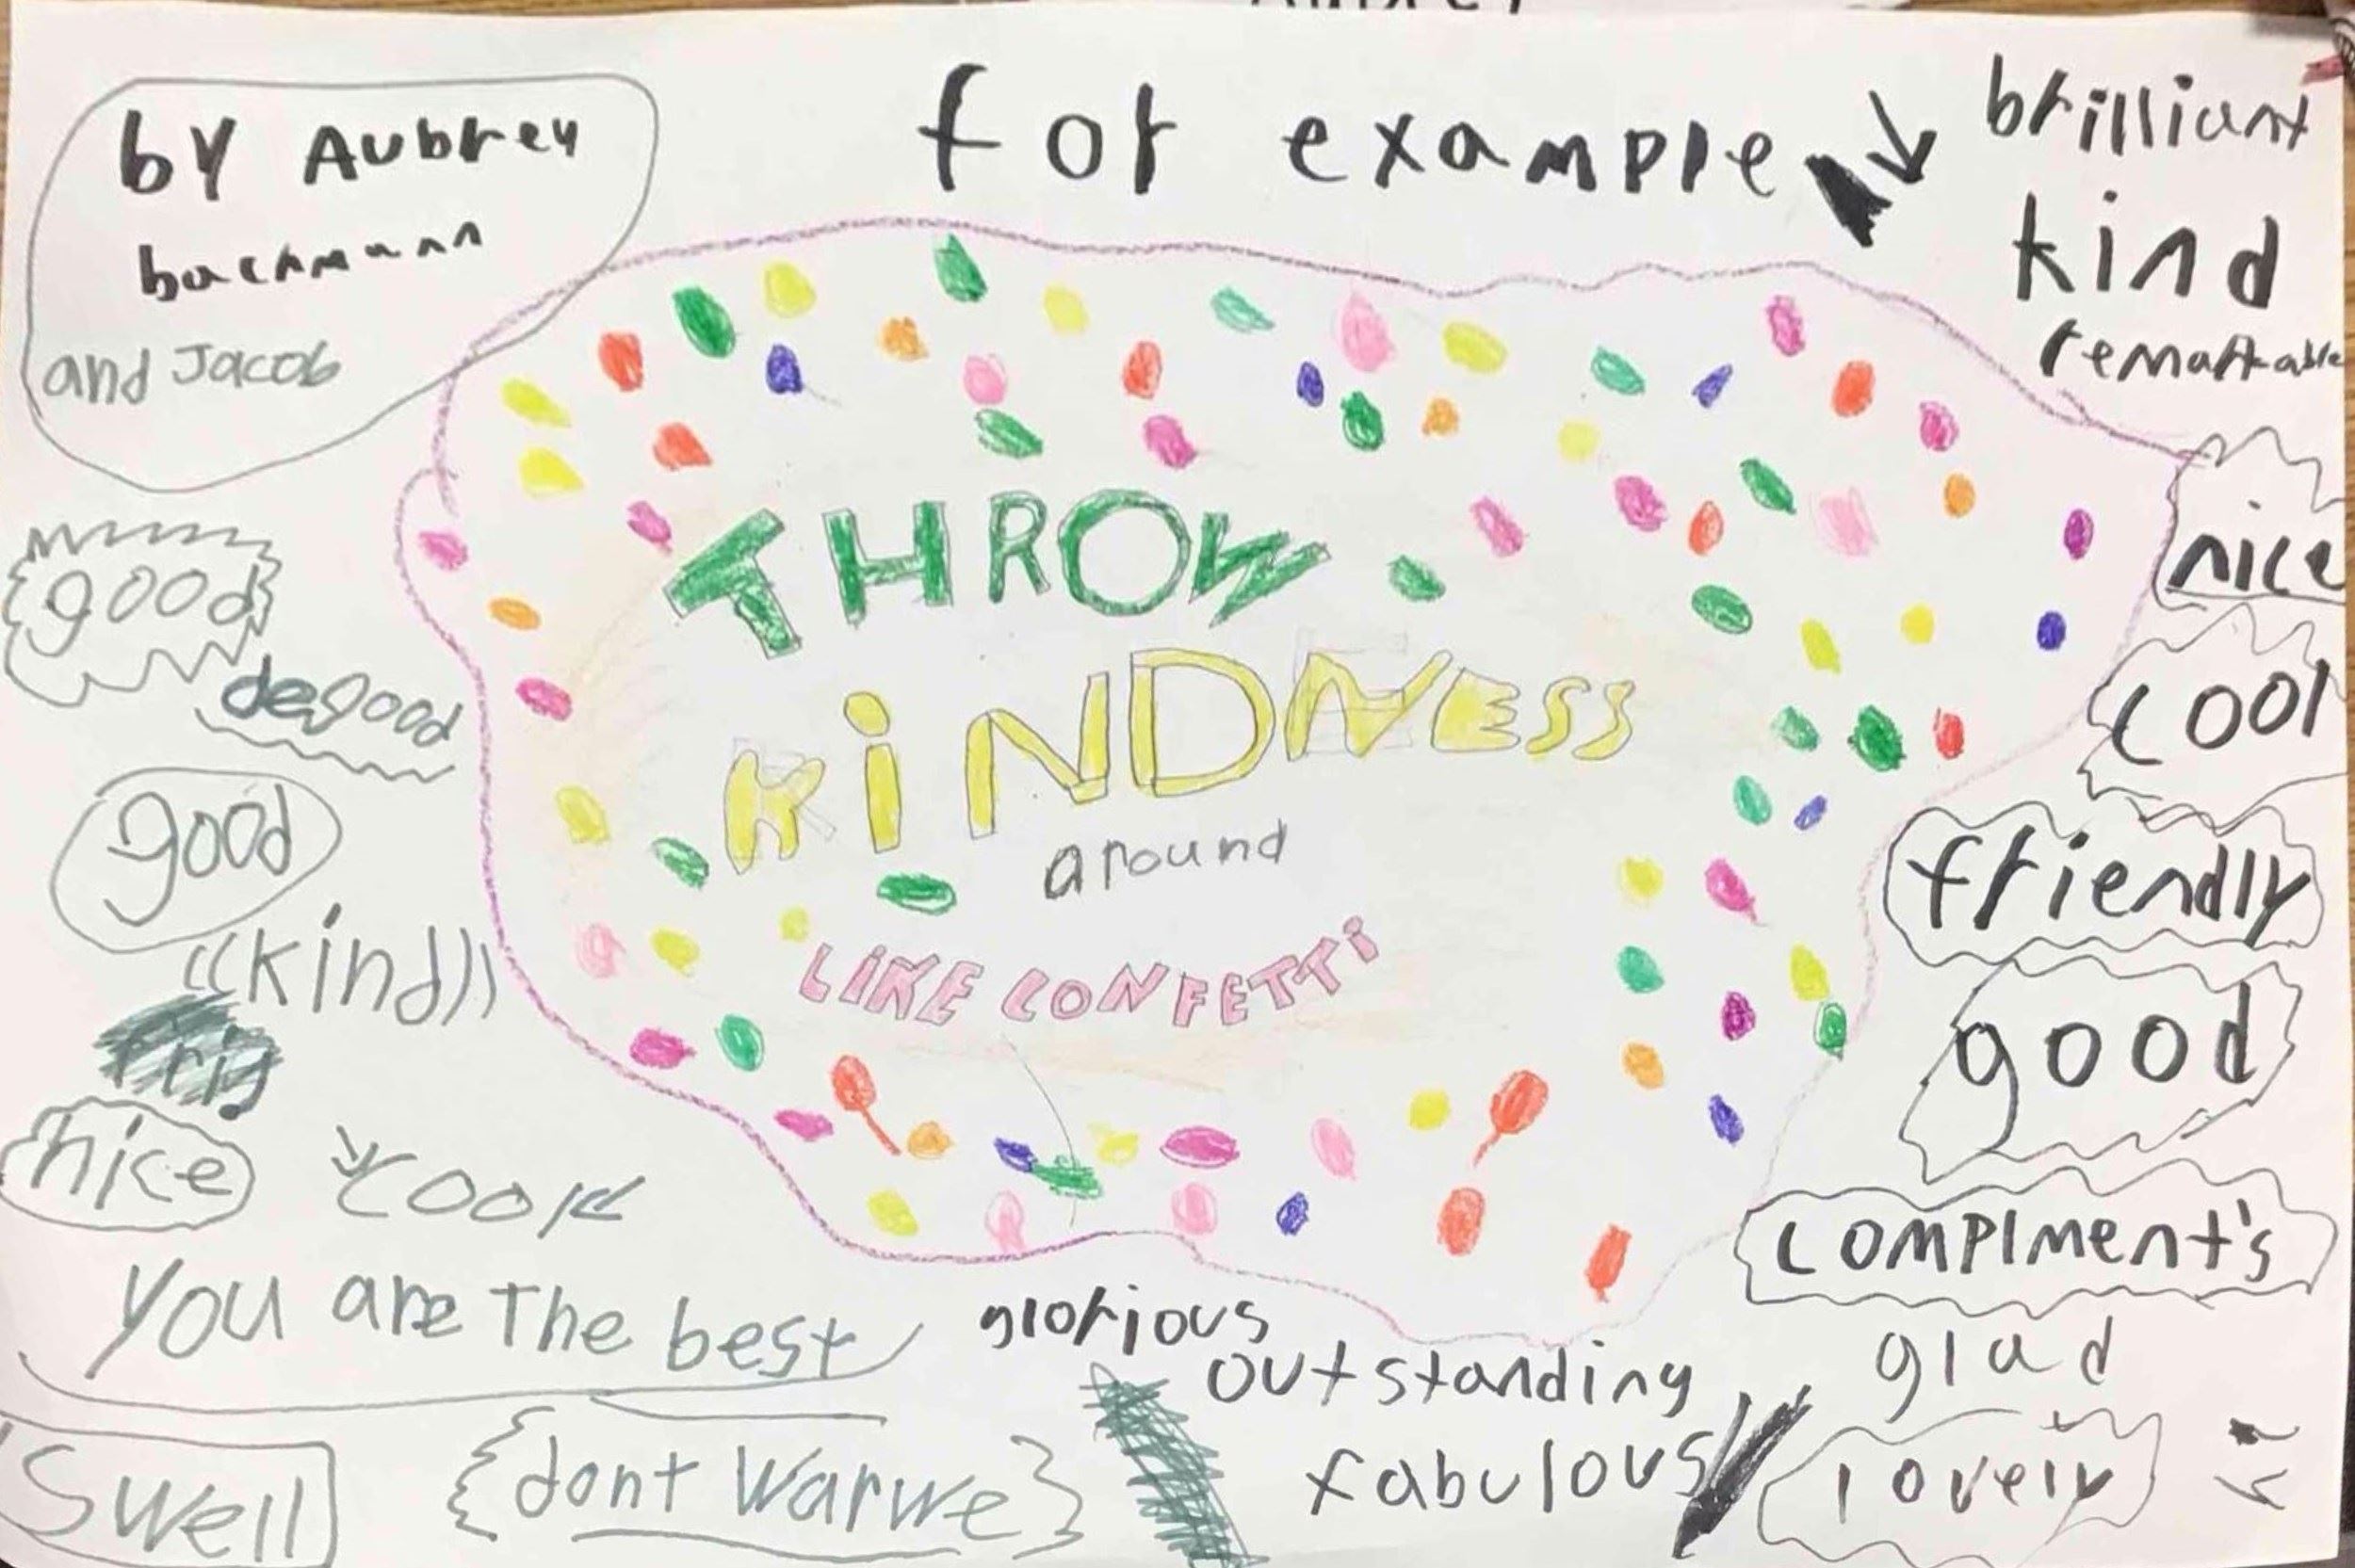 by Aubrey
bachmann
and Jacob
for example
brilliant
kind
remarkable
THROW
KiNDNESS
around
LiKE CONFETTi
good
degood
good
((kind))
nice
cool
you are The best
Swell
{dont Warwe}
nice
cool
friendly
good
complment's
glad
lovely
glorious
outstanding
fabulous